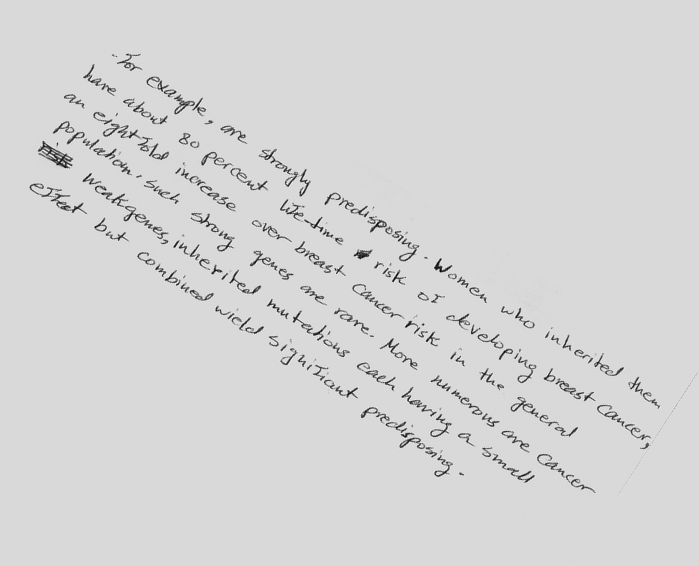 For example, are strongly predisposing. Women who inherited them
have about 80 percent life-time risk of developing breast cancer,
an eight-fold increase over breast cancer risk in the general
population. such strong genes are rare. More numerous are cancer
weakgenes, inherited mutations each having a small
effect but combined wield significant predisposing.